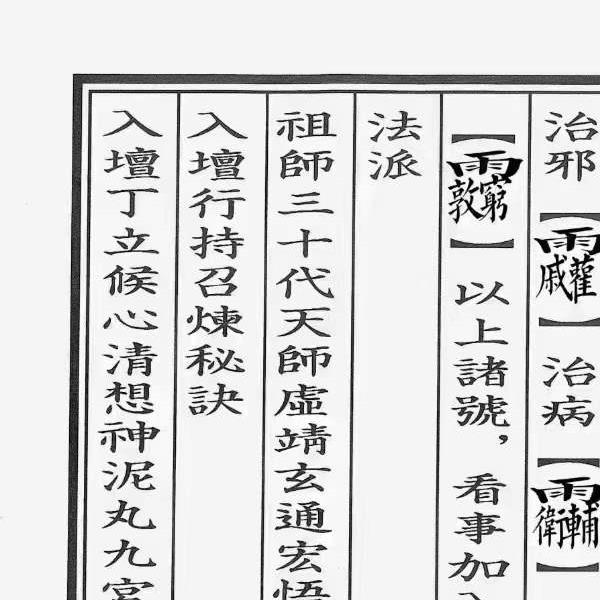 治邪【】治病【】
【】以上諸號，看事加
法派
祖師三十代天師虛靖玄通宏悟
入壇行持召煉秘訣
入壇丁立候心清想神泥丸九宮